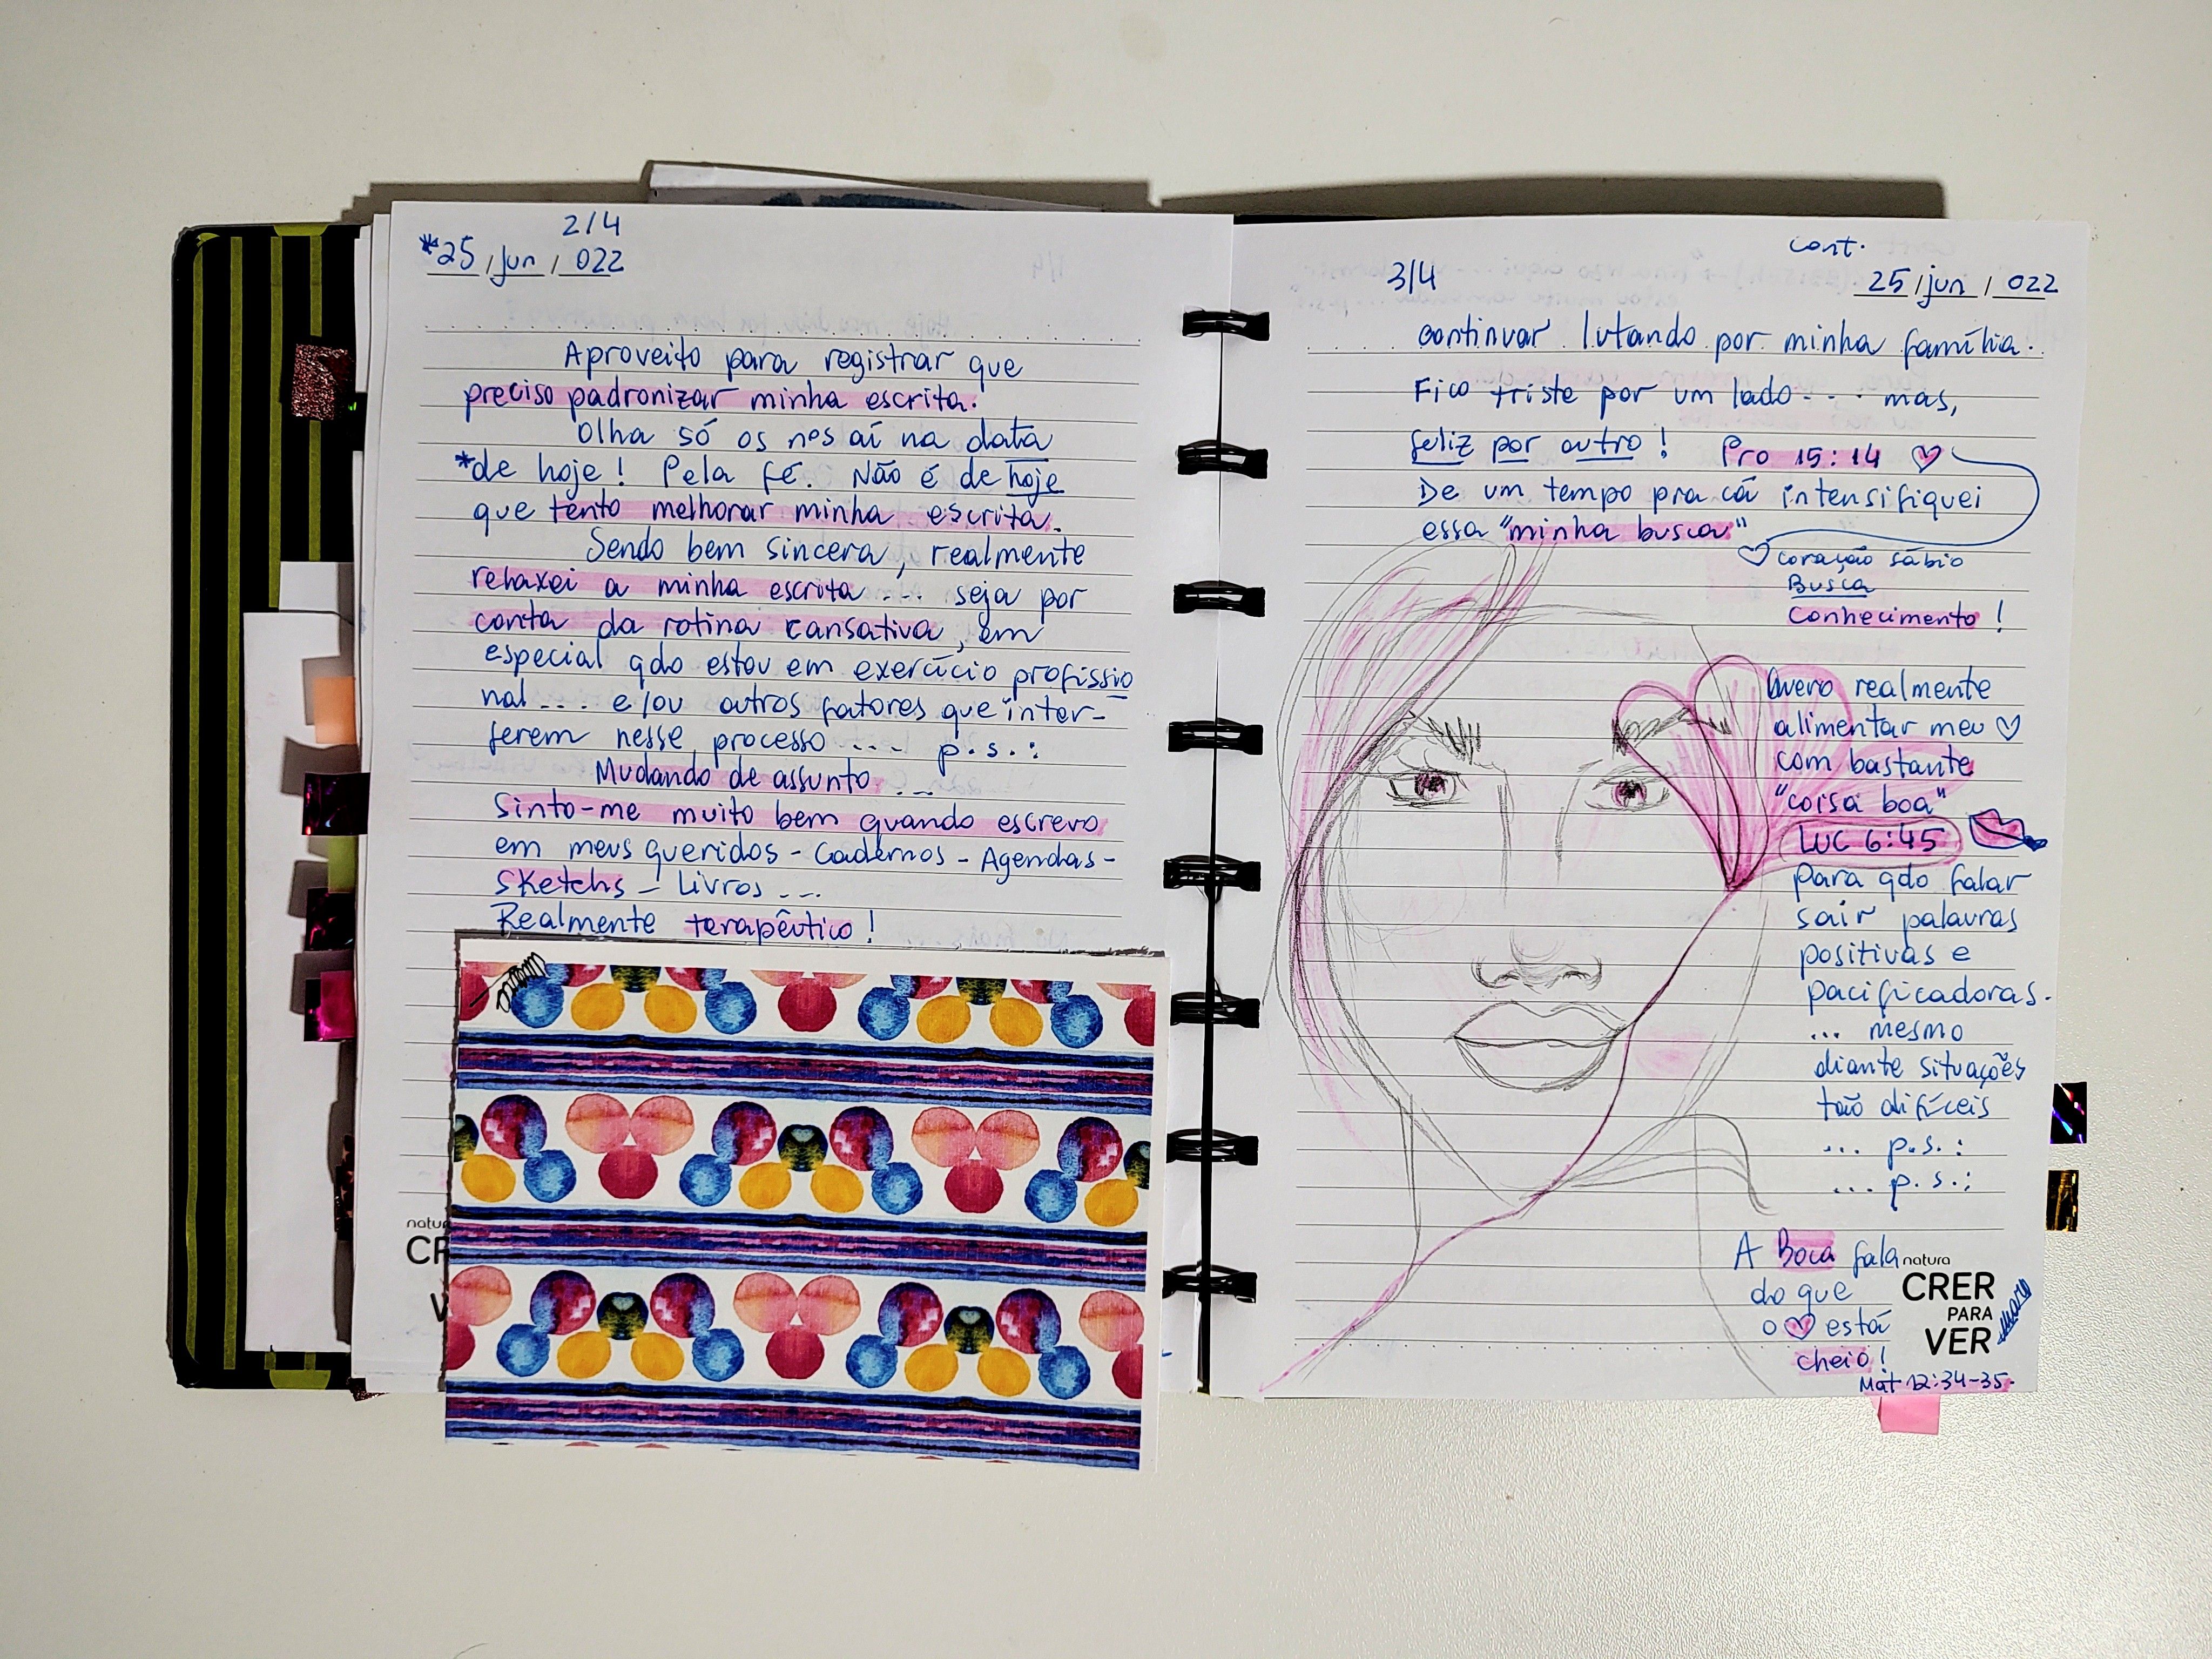 2/4
*25/jun/022
Aproveito para registrar que
preciso padronizar minha escrita.
Olha só os nos aí na data
*de hoje! Pela fé. Não é de hoje
que tento melhorar minha escrita.
Sendo bem sincera, realmente
relaxei a minha escrita... seja por
conta da rotina cansativa, em
especial qdo estou em exercício profissio
nal... e/ou outros fatores que inter-
ferem nesse processo... p.s.:
Mudando de assunto...
Sinto-me muito bem quando escrevo
em meus queridos - Cadernos - Agendas -
Sketchs - Livros...
Realmente terapêutico!
natur
CR
V
cont.
3/4 25/jun/022
continuar lutando por minha família.
Fico triste por um lado... mas,
feliz por outro! Pro 15:14 ♡
De um tempo pra cá intensifiquei
essa "minha busca"
♡ coração sábio
Busca
Conhecimento!
Quero realmente
alimentar meu ♡
com bastante
"coisa boa"
Luc 6:45
para qdo falar
sair palavras
positivas e
pacificadoras.
... mesmo
diante situações
tão difíceis
... p.s.:
... p.s.:
A Boca fala
do que
o ♡ está
cheio!
Mat 12:34-35.
natura
CRER
PARA
VER